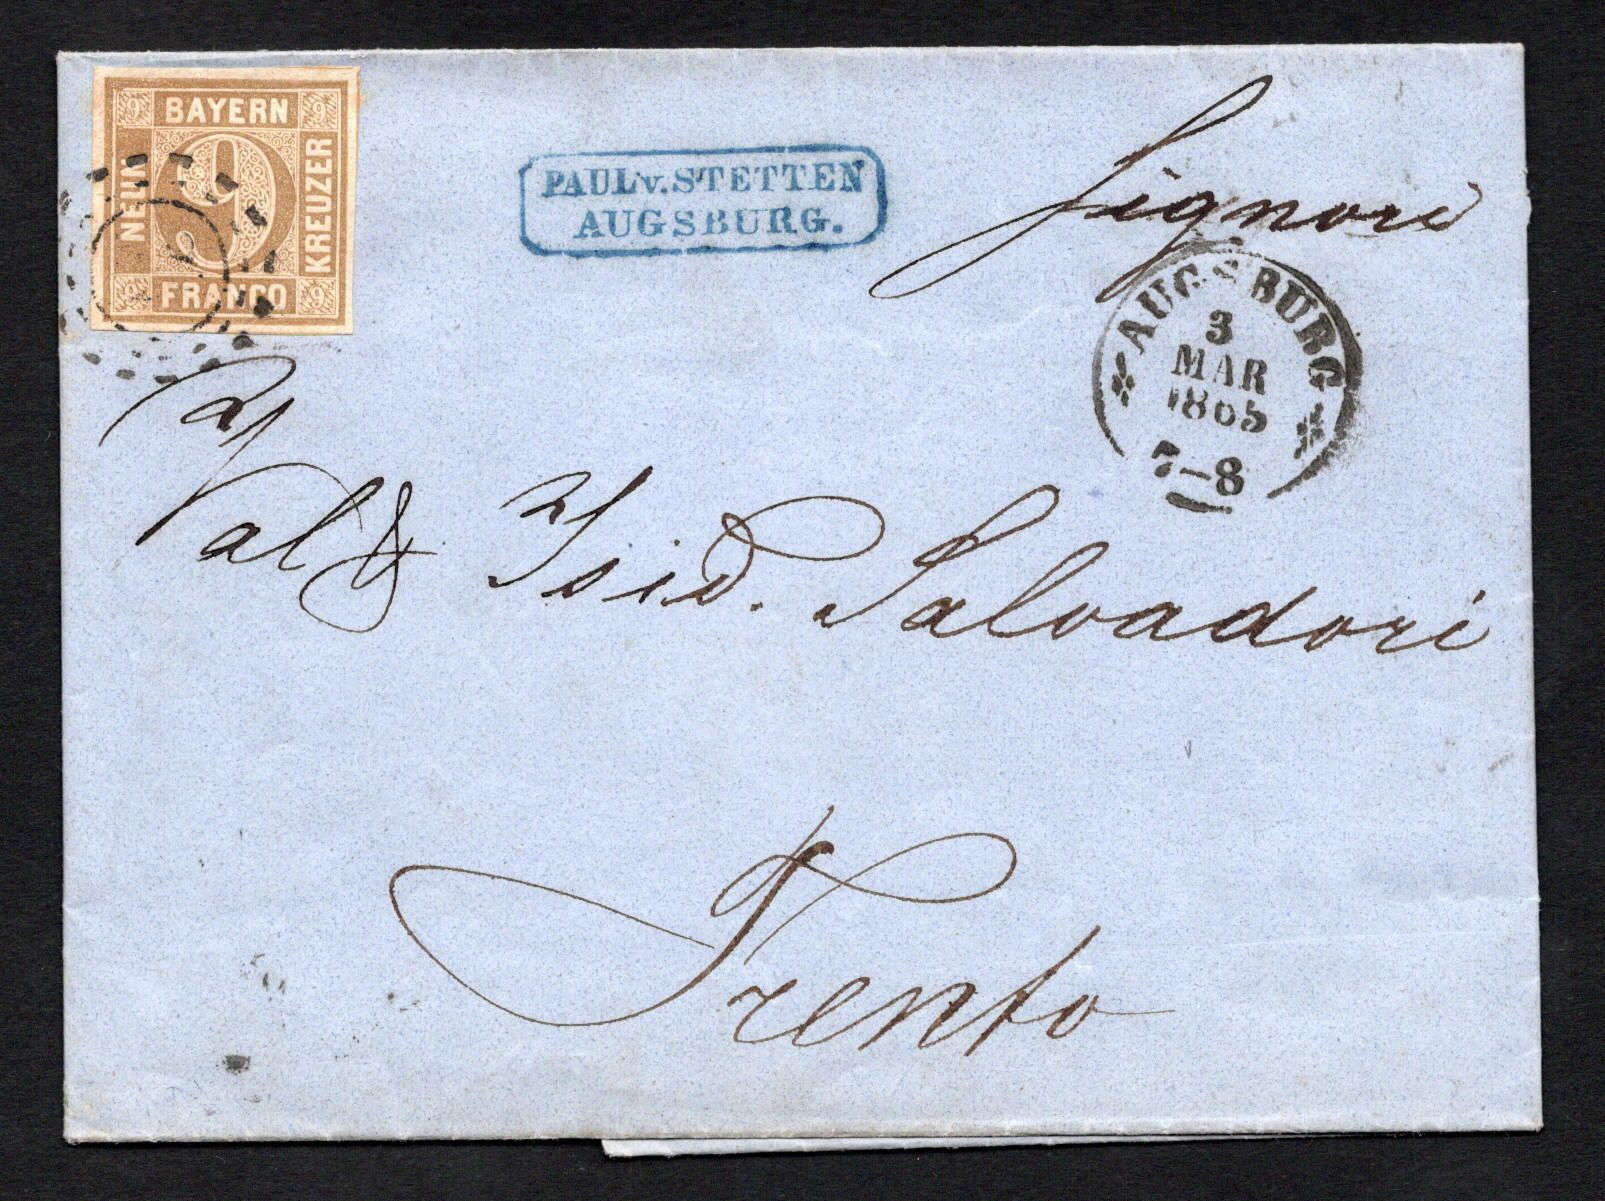 9 BAYERN 9
NEUN
9
KREUZER
9 FRANCO 9
PAUL v. STETTEN
AUGSBURG.
Signori
AUGSBURG
3
MAR
1865
7-8
Val & Isid. Salvadori
Trento